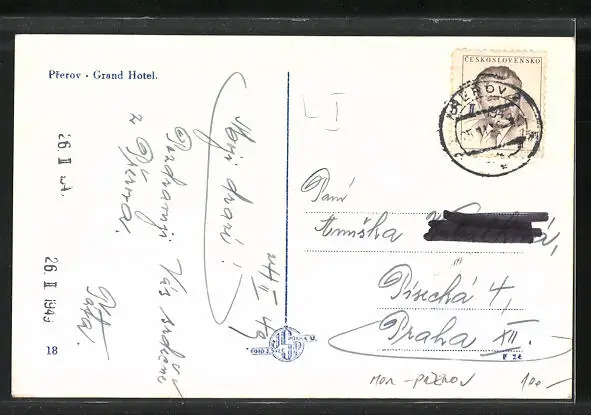 Přerov - Grand Hotel.
ČESKOSLOVENSKO
PŘEROV
LI
26. II
26. II 1949
Moji drazí!
Pozdravuji Vás srdečně
z Přerova.
Táta.
Paní
Anuška
Písecká 4,
Praha XII.
18
MOR - PŘEROV
100.-